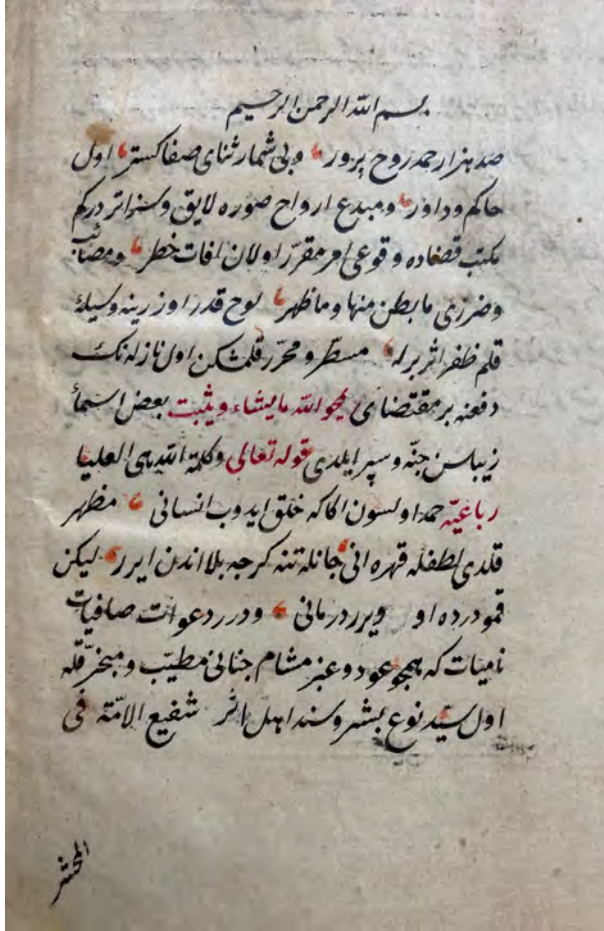 بسم الله الرحمن الرحيم
صد هزار حمد روح پرور وبی شمار ثنای صفا کستر اول
حاکم وداور ومبدع ارواح صوره لایق وسزاتر درکم
مکتب قضاده وقوعی امر مقرر اولان افات خطر ومصائب
وضرری ما بطن منها وما ظهر لوح قدر اوزرینه وسیلهٔ
قلم ظفر اثر برله مسطر ومحرر قلمشکن اول نازله نك
دفعنه بر مقتضای یمحو الله ما یشاء ویثبت بعض اسمأ
زیباسن جنّه وسپر ایلدی قوله تعالی وکلمة الله هی العلیا
رباعیّه حمد اولسون اکا که خلق ایدوب انسانی مظهر
قلدی لطفله قهره انی جانله تنه کرچه بلا اندن ایرر لیکن
قمو درده او ویرر درمانی ودرر دعوات صافیات
نامیات که همچو عود وعنبر مشام جنانی مطیّب ومبخّر قله
اول سیّد نوع بشر وسند اهل اثر شفیع الامّة فی
المحشر